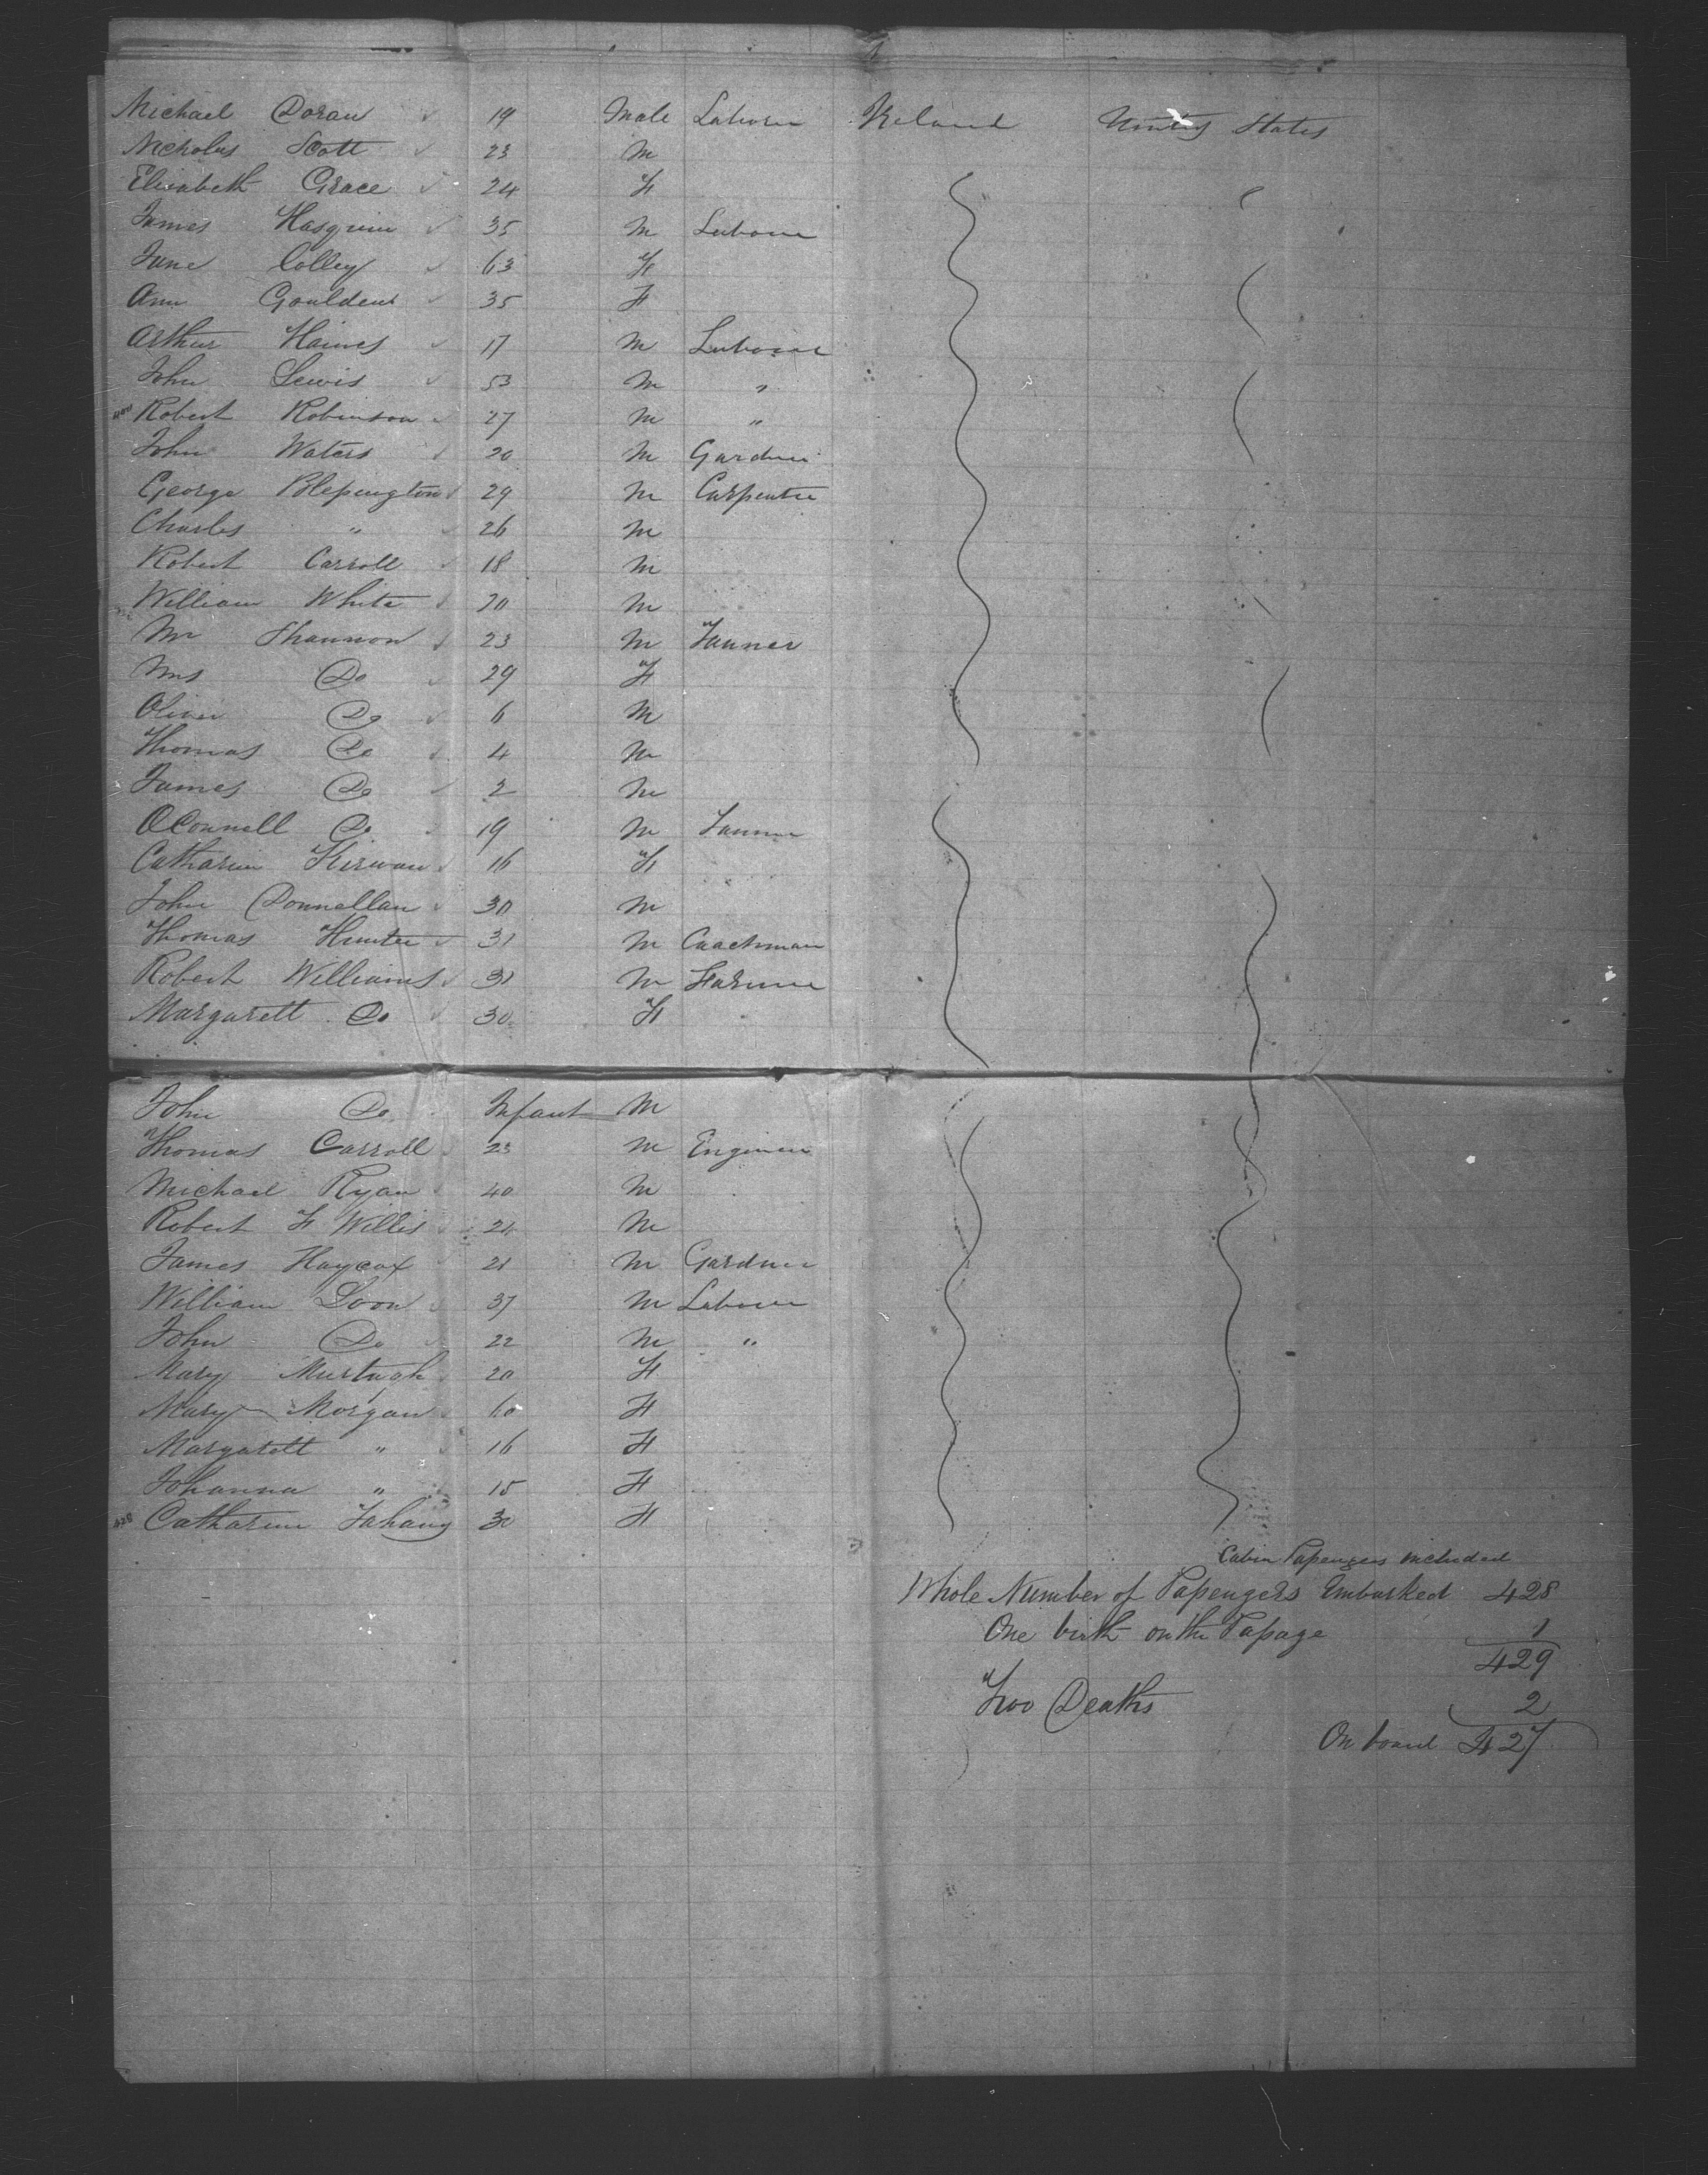 Michael Doran 19 Male Laborer Ireland United States
Nicholas Scott 23 M
Elizabeth Grace 24 F
James 35 M Laborer
Jane Colley 63 F
Ann Gouldens 35 F
Arthur Haines 17 M Laborer
John Lewis 53 M "
Robert Robinson 27 M "
John Waters 20 M Gardner
George Blessington 29 M Carpenter
Charles " 26 M
Robert Carroll 18 M
William White 20 M
Mr Shannon 23 M Tanner
Mrs Do 29 F
Oliver Do 6 M
Thomas Do 4 M
James Do 2 M
OConnell Do 19 M Tanner
Catharine Kirwan 16 F
John Donnellan 30 M
Thomas Hunter 31 M Coachman
Robert Williams 31 M Farmer
Margarett Do 30 F
John Do Infant M
Thomas Carroll 23 M Engineer
Michael Ryan 40 M
Robert F Willis 24 M
James Haycox 21 M Gardner
William Loon 37 M Laborer
John Do 22 M "
Mary Murtagh 20 F
Mary Morgan 60 F
Margarett " 16 F
Johanna " 15 F
428 Catharine Fahany 30 F
Cabin Passengers included
Whole Number of Passengers Embarked 428
One birth on the Passage 1
429
Two Deaths 2
On board 427